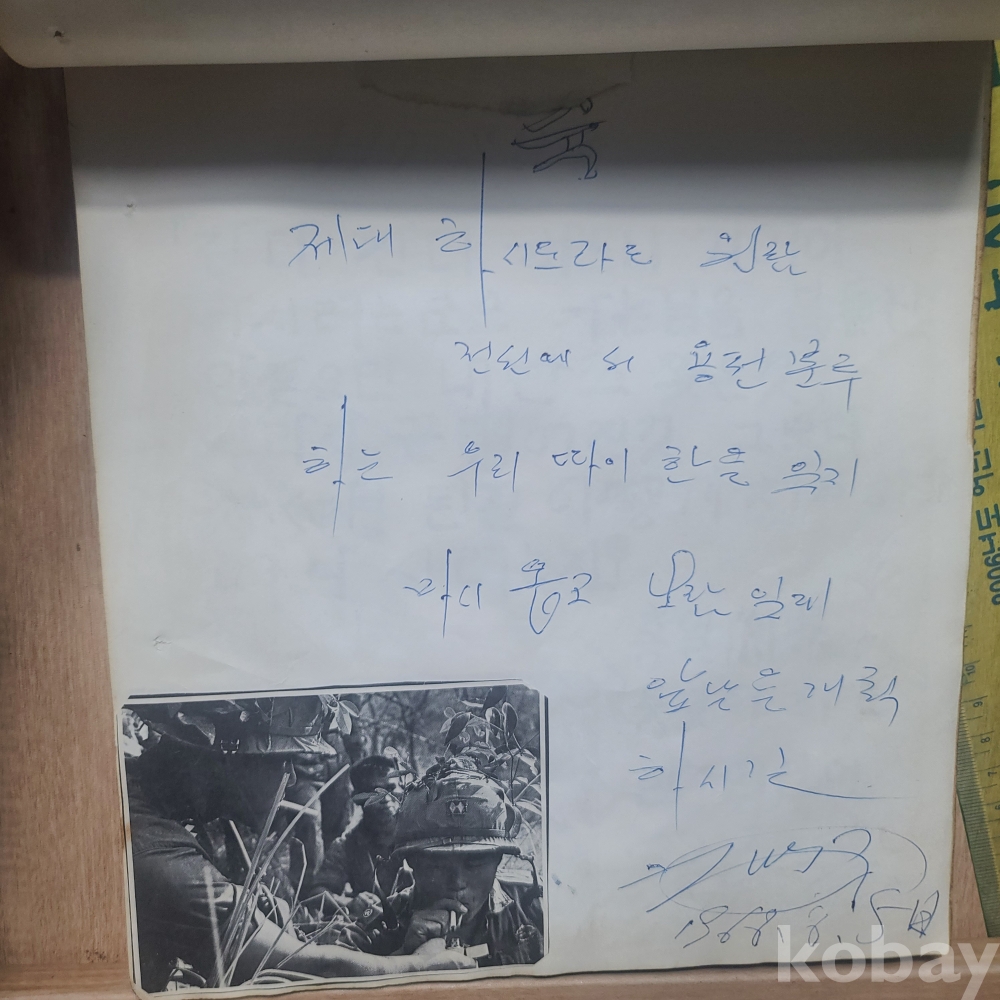 축
제대 하시드라도 월남
전선에서 용전분투
하는 우리 따이한을 잊지
마시옵고 보람있게
앞날을 계획
하시길
1968. 8. 5日
kobay